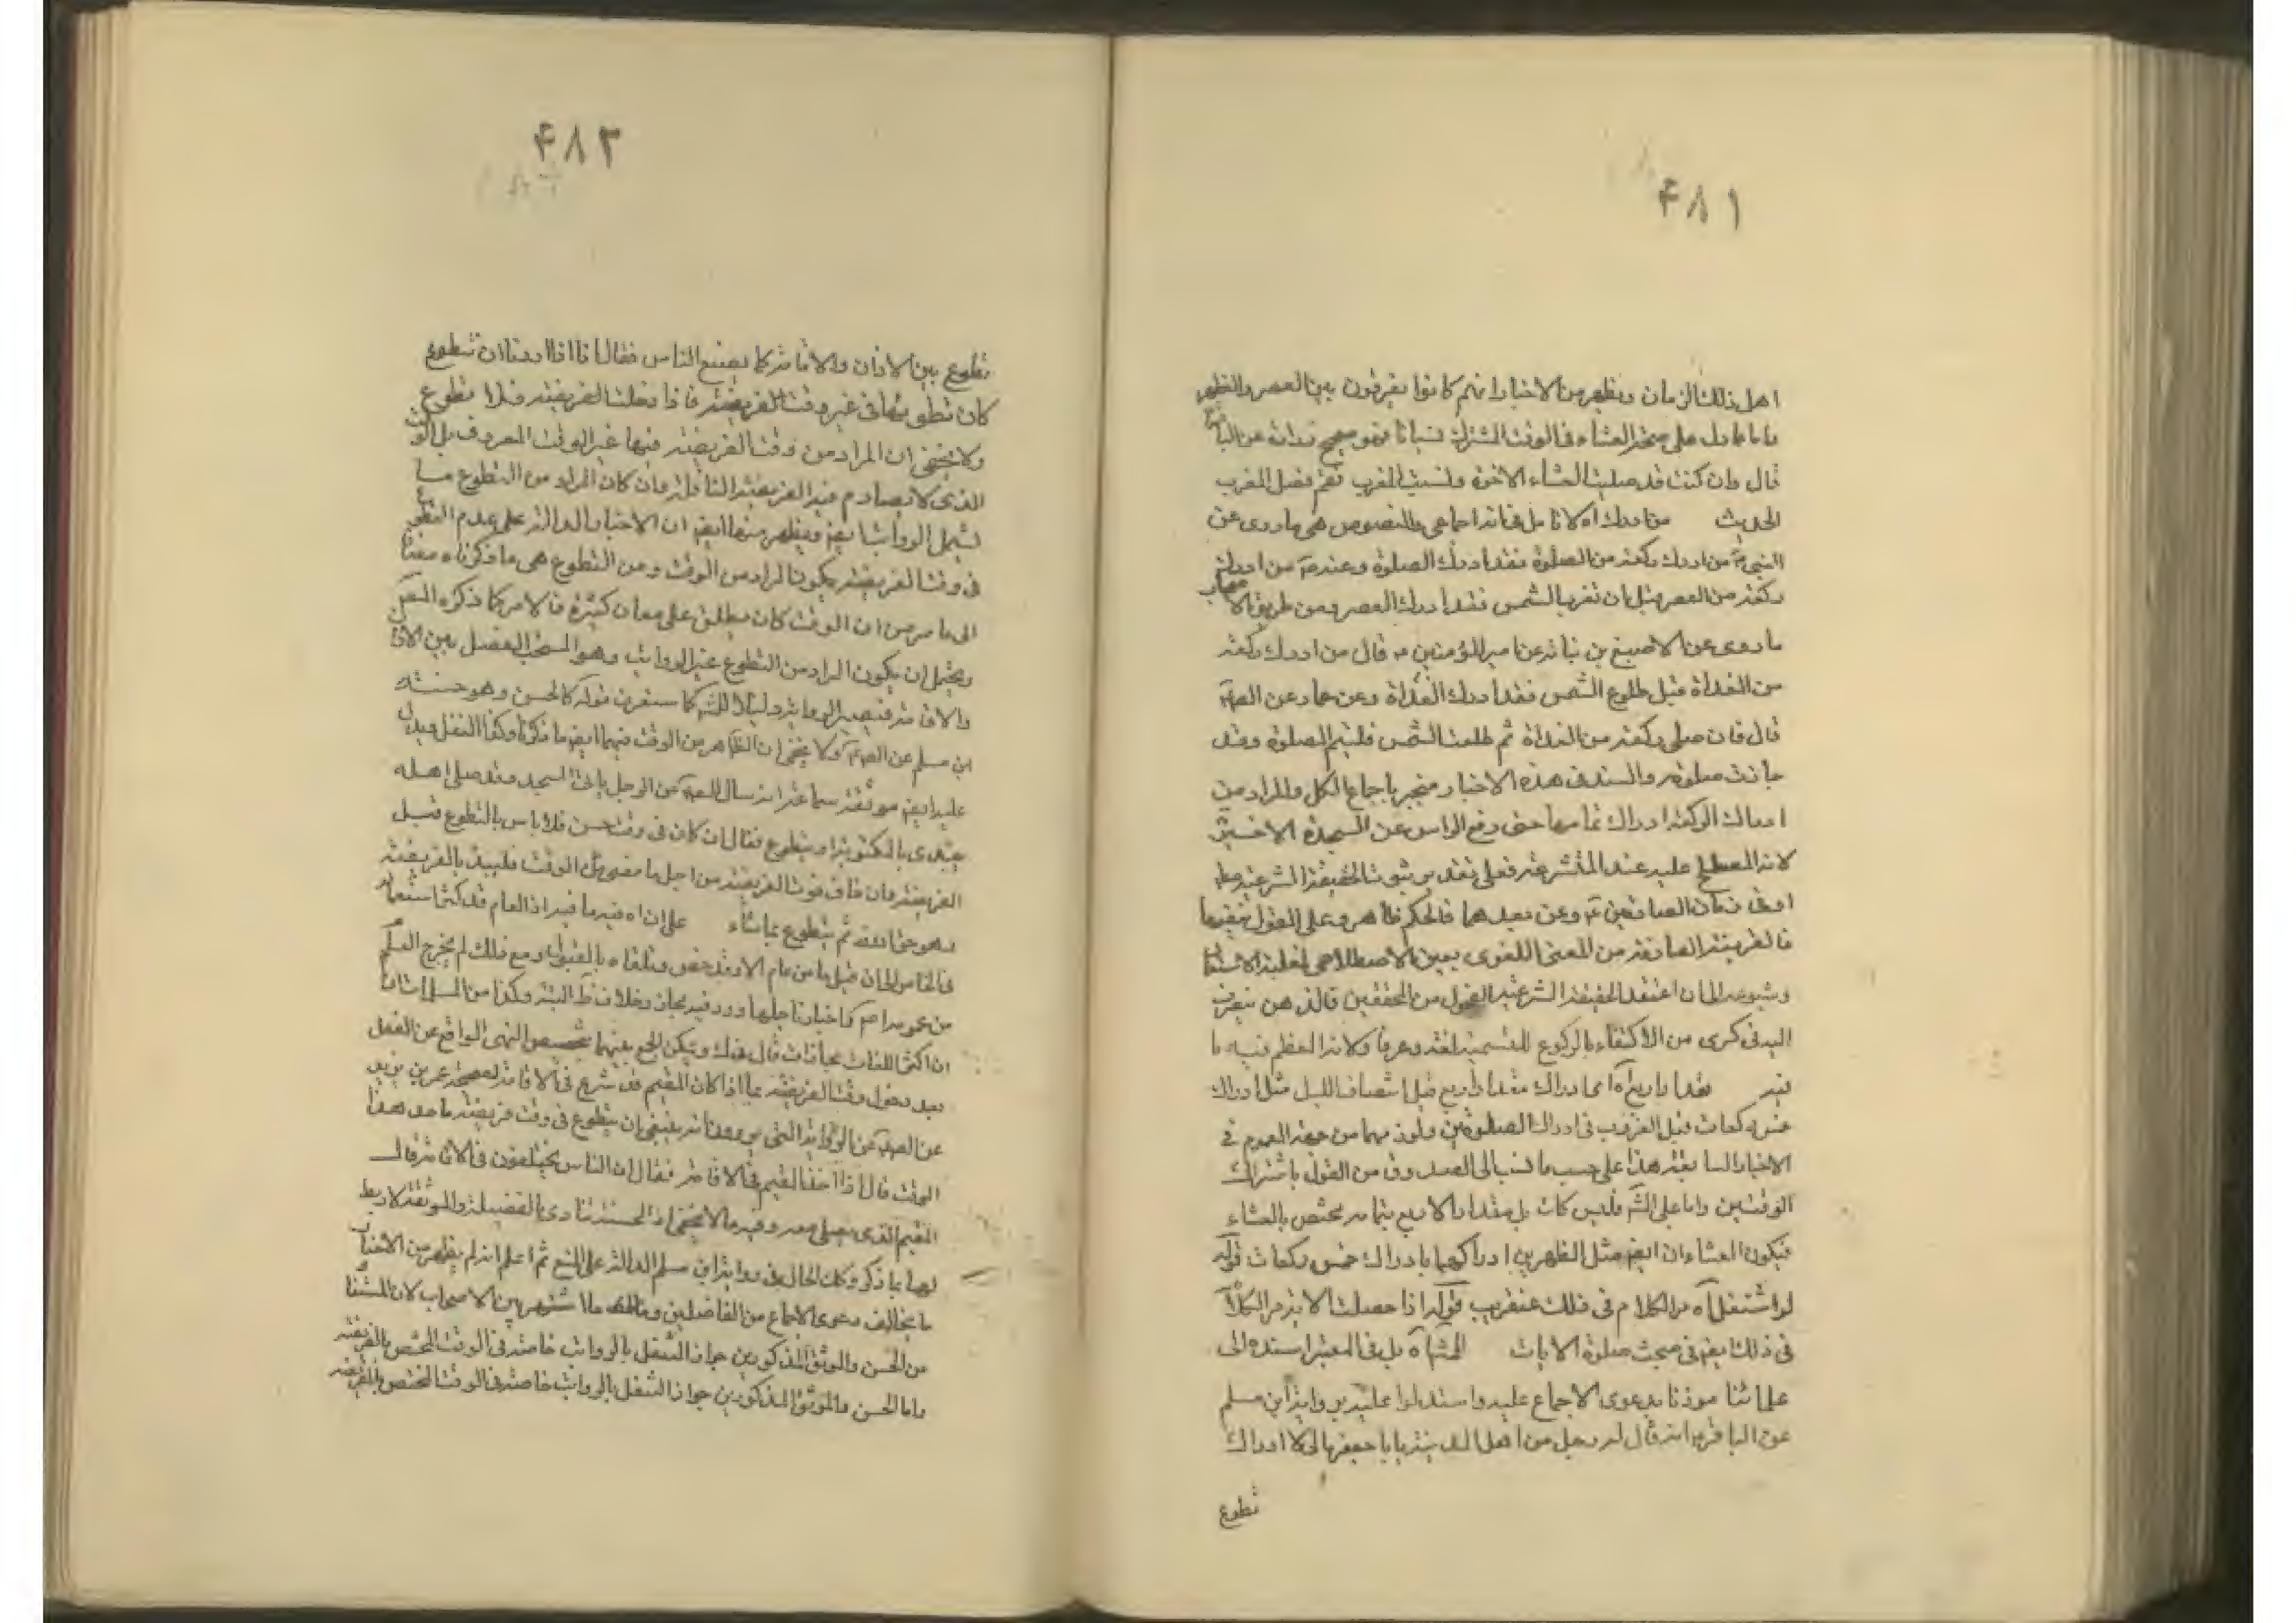 ۴۸۱
اهل ذلك الزمان ويظهر من الاخبار انهم كانوا يفرقون بين العصر والظهر
واما ما دل على صحة العشاء في الوقت المشترك نسيانا فهو صحيح زرارة عن الباقر
قال وان كنت قد صليت العشاء الاخرة ونسيت المغرب فقم فصل المغرب
الحديث من ادرك اه لا تامل فانه اجماعي والنصوص هي ما روى عن
النبي ص من ادرك ركعة من الصلوة فقد ادرك الصلوة وعنه ص من ادرك
ركعة من العصر قبل ان تغرب الشمس فقد ادرك العصر ومن طريق الاصحاب
ما روى عن الاصبغ بن نباتة عن امير المؤمنين ع قال من ادرك ركعة
من الغداة قبل طلوع الشمس فقد ادرك الغداة وعن عمار عن الصم
قال فان صلى ركعة من الغداة ثم طلعت الشمس فليتم الصلوة وقد
جازت صلوته والسند في هذه الاخبار منجبر باجماع الكل والمراد من
ادراك الركعة ادراك تمامها حتى رفع الراس عن السجدة الاخيرة
لانه المصطلح عليه عند المتشرعة فعلى تقدير ثبوت الحقيقة الشرعية مط
او في زمان الصادقين ع ومن بعدهما فالحكم ظاهر وعلى القول بنفيها
فالقرينة الصارفة من المعنى اللغوي يعين الاصطلاحي لغلبة الاستعمال
وشيوعه الى ان اعتقد الحقيقة الشرعية الفحول من المحققين فالذهن ينصرف
اليه في كرى من الاكتفاء بالركوع للتسمية لغة وعرفا ولانه المعظم فيه ما
فيه مقدار اربع اه اى ادراك مقدار اربع قبل انتصاف الليل مثل ادراك
خمس ركعات قبل الغروب في ادراك الصلوتين ولزومهما من جهة العموم في
الاخبار السابقة هذا على حسب ما نسب الى الصدوق من القول باشتراك
الوقتين واما على المش فليس كك بل مقدار الاربع بتمامه مختص بالعشاء
فيكون العشاءان ايض مثل الظهرين ادراكهما بادراك خمس ركعات قوله
لو اشتغل اه مر الكلام في ذلك عنقريب قوله اذا حصلت الاية مر الكلام
في ذلك ايض في مبحث صلوة الايات المش اه بل في المعتبر اسنده الى
علمائنا موذنا بدعوى الاجماع عليه واستدلوا عليه برواية ابن مسلم
عن الباقر ع انه قال له رجل من اهل المدينة يا با جعفر مالى لا اراك
تطوع
۴۸۲
تطوع بين الاذان والاقامة كما يصنع الناس فقال انا اذا اردنا ان نتطوع
كان تطوعنا في غير وقت الفريضة فاذا دخلت الفريضة فلا تطوع
ولا يخفى ان المراد من وقت الفريضة فيها غير الوقت المعروف بل الوقت
الذى لا يصادم فيه الفريضة النافلة وان كان المراد من التطوع ما
يشمل الرواتب ايض ويظهر منها ايض ان الاخبار الدالة على عدم التطوع
في وقت الفريضة يكون المراد من الوقت ومن التطوع هي ما ذكرناه مضافا
الى ما مر من ان الوقت كان يطلق على معان كثيرة فالامر كما ذكره المص
ويحتمل ان يكون المراد من التطوع غير الرواتب وهو المستحب الفصل بين الاذان
والاقامة فيصير الرواية دليلا للش كما ستعرف قوله كالحسن وهو حسنة
ابن مسلم عن الصم ولا يخفى ان الظاهر من الوقت فيهما ايض ما ذكرنا وكذا النفل ويدل
عليه ايض موثقة سماعة انه سال الصم عن الرجل ياتي المسجد وقد صلى اهله
يبتدى بالمكتوبة او يتطوع فقال ان كان في وقت حسن فلا باس بالتطوع قبل
الفريضة وان خاف فوت الفريضة من اجل ما مضى من الوقت فليبدء بالفريضة
وهو حق الله ثم يتطوع بما شاء على ان اه فيه ما فيه اذ العام قد كثر استعماله
في الخاص الى ان قيل ما من عام الا وقد خص وتلقاه بالقبول ومع ذلك لم يخرج العلم
من عمومه ا هم كاخبارنا جلها ورد فيه مجاز وخلاف ظ البتة وكذا من المسلمات
ان اكثر اللغات مجازات قال في ك ويمكن الجمع بينهما بتخصيص النهى الواقع عن النفل
بعد دخول وقت الفريضة بما اذا كان المقيم قد شرع في الاقامة لصحيحة عمر بن يزيد
عن الصم عن الرواية التي يروون انه لا ينبغي ان يتطوع في وقت فريضة ما حد هذا
الوقت قال اذا اخذ المقيم في الاقامة فقال ان الناس يختلفون في الاقامة قال
المقيم الذى يصلى معه وفيه ما لا يخفى اذ الحسنة تنادى بالفضيلة والموثقة لا ربط
لها بما ذكر وكك الحال في رواية ابن مسلم الدالة على المنع ثم اعلم انه لم يظهر من الاخبار
ما يخالف دعوى الاجماع من الفاضلين ما اشتهر بين الاصحاب لان
من الحسن والموثق المذكورين جواز التنفل بالرواتب خاصة في الوقت المختص بالفريضة
واما الحسن والموثق المذكورين جواز التنفل بالرواتب خاصة في الوقت المختص بالفريضة